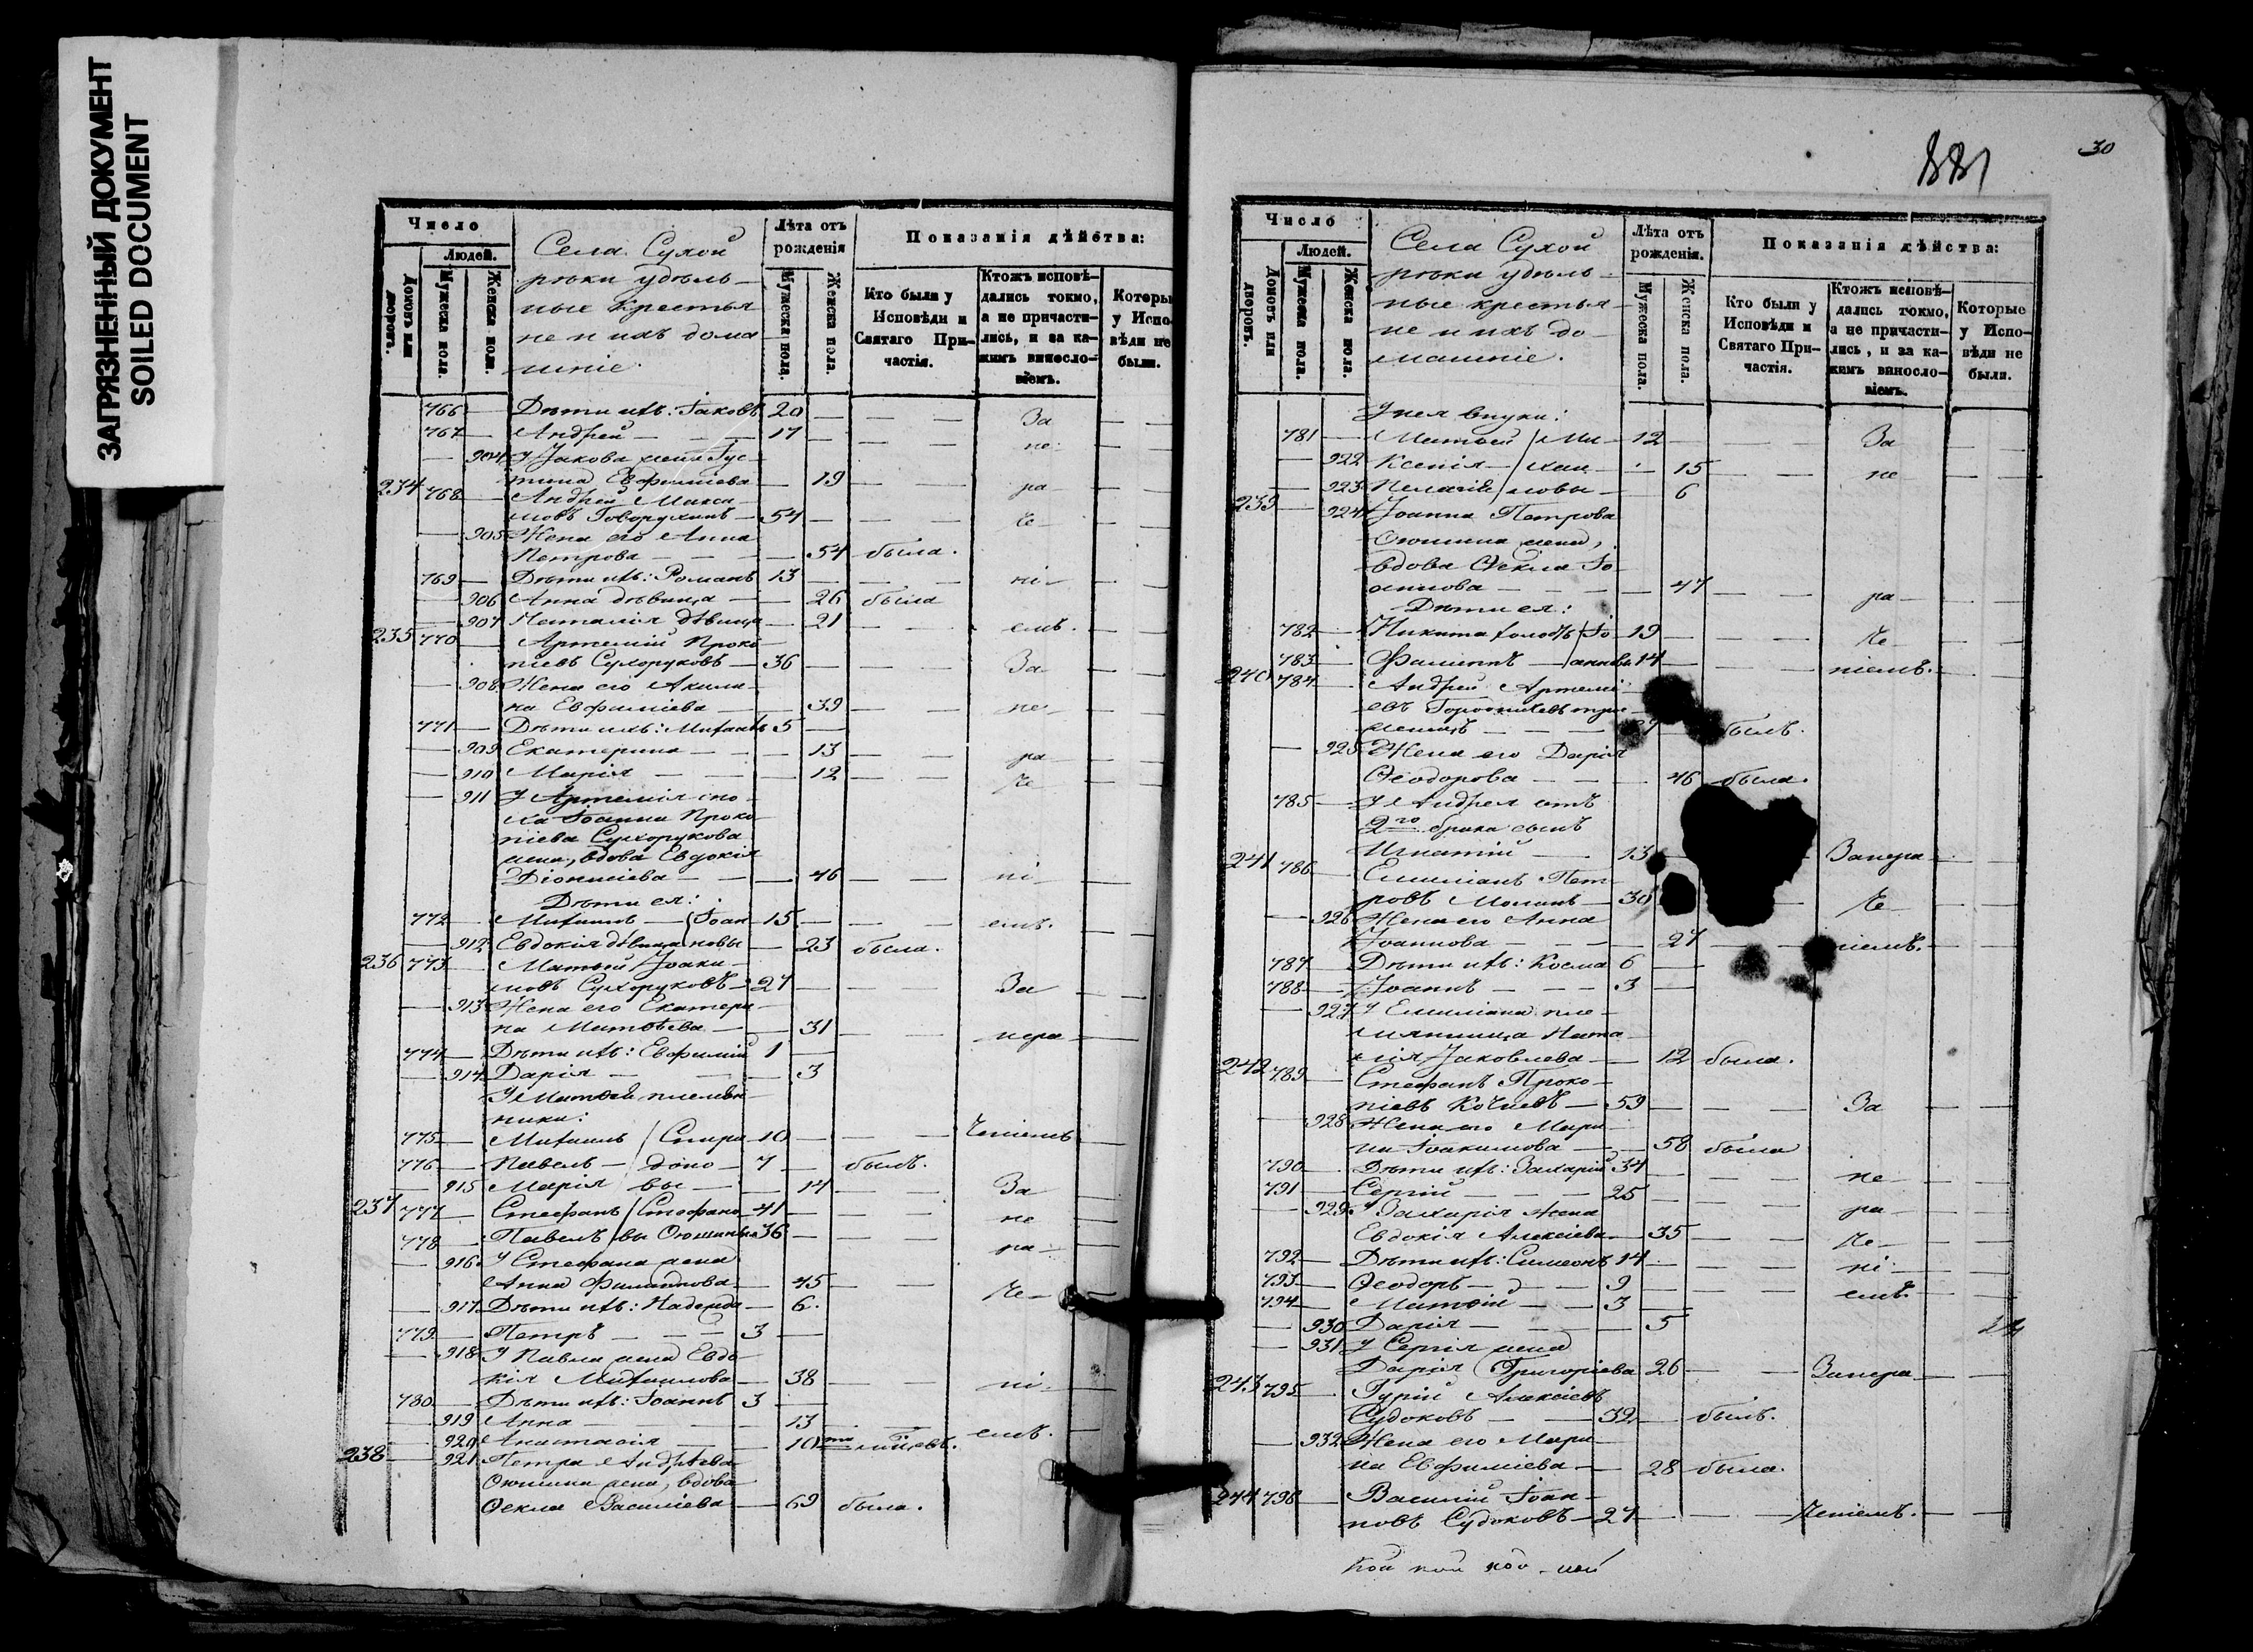 ЗАГРЯЗНЕННЫЙ ДОКУМЕНТ
SOILED DOCUMENT
Число
Людей.
Домовъ или дворовъ.
Мужеска пола.
Женска пола.
Села Сухой
рѣки удѣль-
ные крестья
не и ихъ дома
шніе.
Лѣта отъ рожденія
Мужеска пола.
Женска пола.
Показанія дѣйства:
Кто были у Исповѣди и Святаго При-частія.
Ктожъ исповѣ-дались токмо, а не причасти-лись, и за ка-кимъ винословіемъ.
Которы у Испо-вѣди не были.
766 Дѣти ихъ: Іаковъ 20 За
767 Андрей 17 не
904 У Іакова жена Іус-
тина Евфиміева 19 ра
234 768 Андрей Макси
мовъ Говорухинъ 54 че
905 Жена его Анна
Петрова 54 была.
769 Дѣти ихъ: Романъ 13 ні
906 Анна дѣвица 26 была
907 Наталія дѣвица 21 емъ.
235 770 Артемій Проко
піевъ Сухоруковъ 36 За
908 Жена его Акили
на Евфиміева 39 не
771 Дѣти ихъ: Михаилъ 5
909 Екатерина 13 ра
910 Марія 12 че
911 У Артемія сно
ха Іоанна Проко
піева Сухорукова
жена, вдова Евдокія
Діонисіева 46 ні
Дѣти ея:
772 Михаилъ Іоан 15 емъ.
912 Евдокія дѣвица новы 23 была.
236 773 Матѳей Іоаки
мовъ Сухоруковъ 27 За
913 Жена его Екатери
на Матѳѣева 31 нера
774 Дѣти ихъ: Евфимій 1
914 Дарія 3
У Матѳея племян
ники:
775 Михаилъ Спири 10 Ченіемъ
776 Павелъ доно 7 былъ.
915 Марія вы 14 За
237 777 Стефанъ Стефано 41 не
778 Павелъ вы Оюшины 36 ра
916 У Стефана жена
Анна Филиппова 45 Че
917 Дѣти ихъ: Надежда 6.
779 Петръ 3
918 У Павла жена Евдо
кія Михаилова 38 ні
780 Дѣти ихъ: Іоаннъ 3
919 Анна 13 емъ.
920 Анастасія 10
238 921 Петра Андрѣева
Оюшина жена, вдова
Ѳекла Василіева 69 была.
881
30
Число
Людей.
Домовъ или дворовъ.
Мужеска пола.
Женска пола.
Села Сухой
рѣки удѣль-
ные крестья-
не и ихъ до-
машніе.
Лѣта отъ рожденія.
Мужеска пола.
Женска пола.
Показанія дѣйства:
Кто были у Исповѣди и Святаго При-частія.
Ктожъ исповѣ-дались токмо, а не причасти-лись, и за ка-кимъ винословіемъ.
Которые у Испо-вѣди не были.
У нея внуки:
781 Матѳей Ми 12 За
922 Ксенія хаи 15 не
923 Пелагія ловы 6
239 924 Іоанна Петрова
Оюшина жена,
вдова Ѳекла Іо
аннова 47 ра
Дѣти ея:
782 Никита холостъ Іо 19 Че
783 Филиппъ анновы 14 ніемъ.
240 784 Андрей Артемі
евъ
былъ.
925 Жена его Дарія
Ѳеодорова 46 была.
785 У Андрея отъ
2го брака сынъ
Игнатій 13 Занера
241 786 Емиліанъ Пет
ровъ 30 Че
926 Жена его Анна
Іоаннова 27 ніемъ.
787 Дѣти ихъ: Косма 6
788 Іоаннъ 3
927 У Емиліана пле
мянница Ната
лія Іаковлева 12 была.
242 789 Стефанъ Проко
піевъ Кочневъ 59 За
928 Жена его Мари
на Іоакимова 58 была
790 Дѣти ихъ: Захарій 34 не
791 Сергій 25
929 У Захарія жена ра
Евдокія Алексіева 35 Че
792 Дѣти ихъ: Симеонъ 14 ні
793 Ѳеодоръ 9
794 Матѳій 3 емъ.
930 Дарія 5
931 У Сергія жена
Дарія Григоріева 26 Занера
243 795 Гурій Алексіевъ
Судоковъ 32 былъ.
932 Жена его Мари
на Евфиміева 28 была.
244 796 Василій Іоан
новъ Судоковъ 27 Ченіемъ.